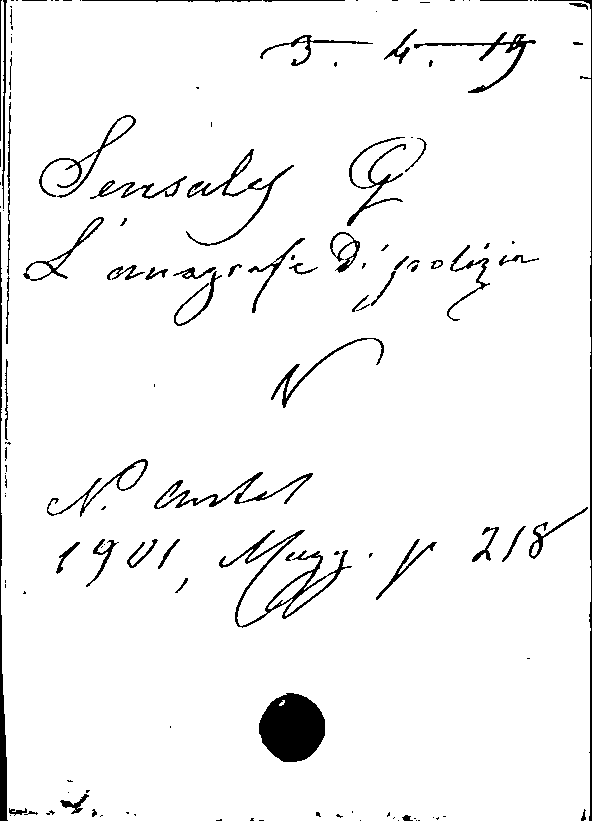 3. 4. 19
Sensales G
L'anagrafe di polizia
N
N. Antol
1901, Magg. p 218